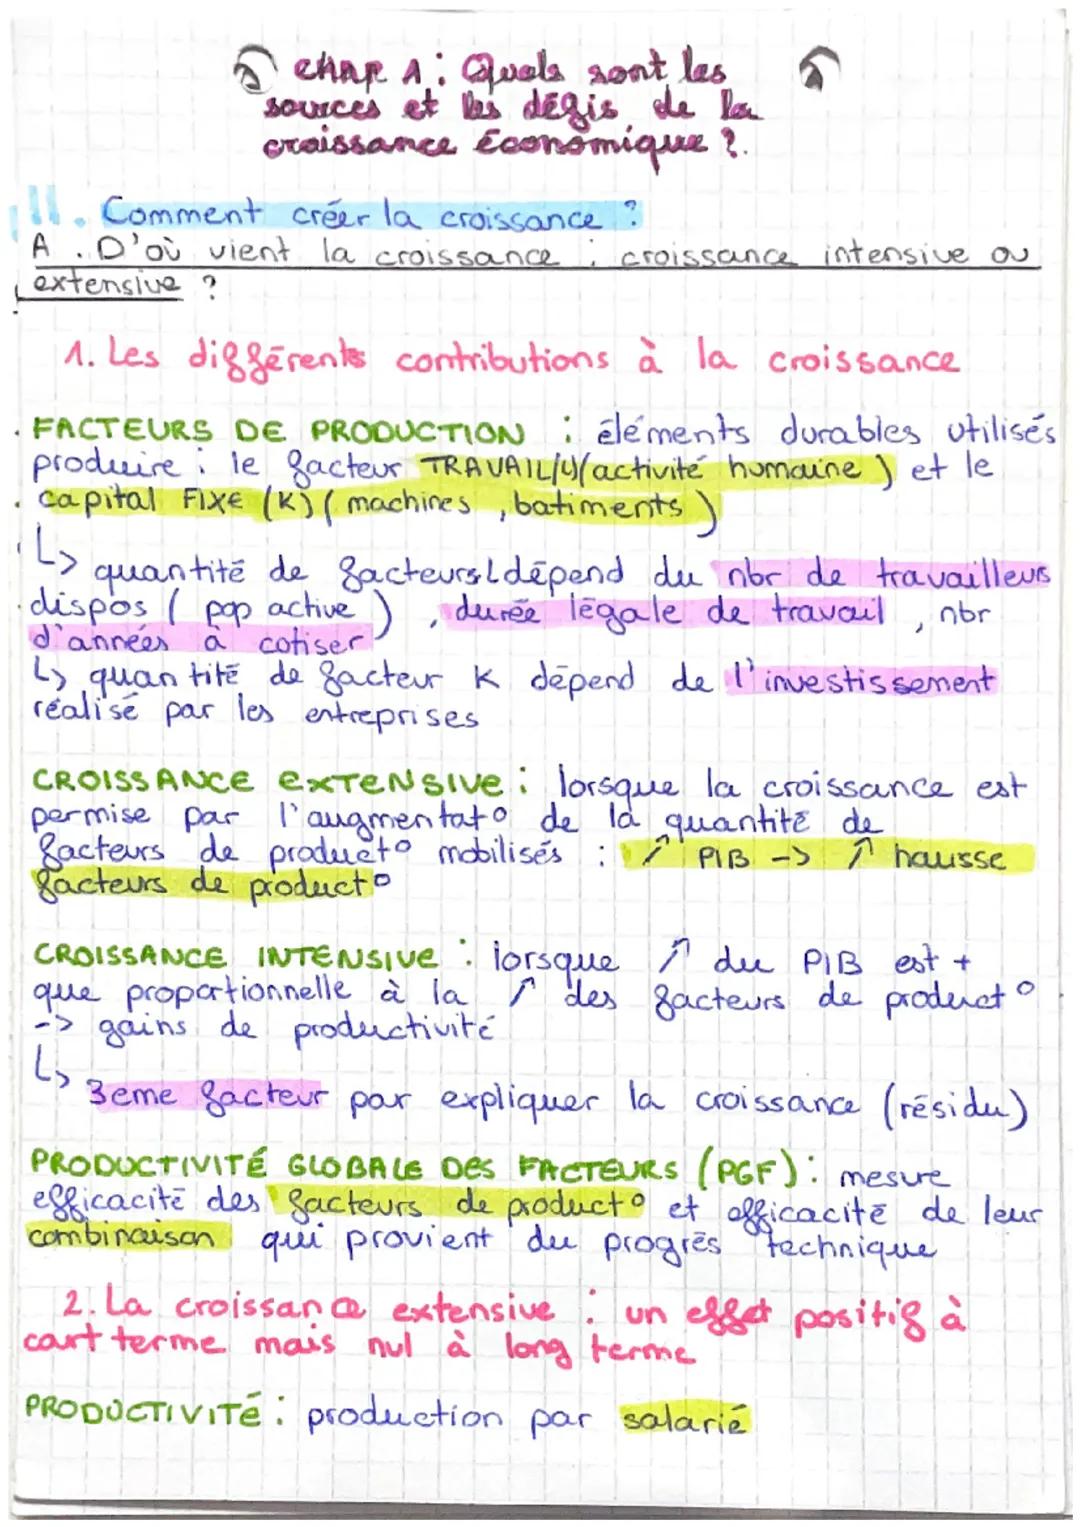 CHAP 1 : Quels sont les
sources et les défis de la
croissance Économique ?.
II. Comment créer la croissance ?
A. D'où vient la croissance : croissance intensive ou
extensive ?
1. Les différents contributions à la croissance
FACTEURS DE PRODUCTION : éléments durables utilisés
produire : le facteur TRAVAIL (activité humaine) et le
capital FIXE (K) (machines, batiments)
↳ quantité de facteurs L dépend du nbr de travailleurs
dispos (pop active), durée légale de travail, nbr
d'années à cotiser
↳ quantité de facteur K dépend de l'investissement
réalisé par les entreprises
CROISSANCE EXTENSIVE : lorsque la croissance est
permise par l'augmentat° de la quantité de
facteurs de product° mobilisés : ↗ PIB -> ↗ hausse
facteurs de product°
CROISSANCE INTENSIVE : lorsque ↗ du PIB est +
que proportionnelle à la ↗ des facteurs de product°
-> gains de productivité
↳ 3eme facteur par expliquer la croissance (résidu)
PRODUCTIVITÉ GLOBALE DES FACTEURS (PGF) : mesure
efficacité des facteurs de product° et efficacité de leur
combinaison qui provient du progrès technique
2. La croissance extensive : un effet positif à
court terme mais nul à long terme
PRODUCTIVITÉ : production par salarié